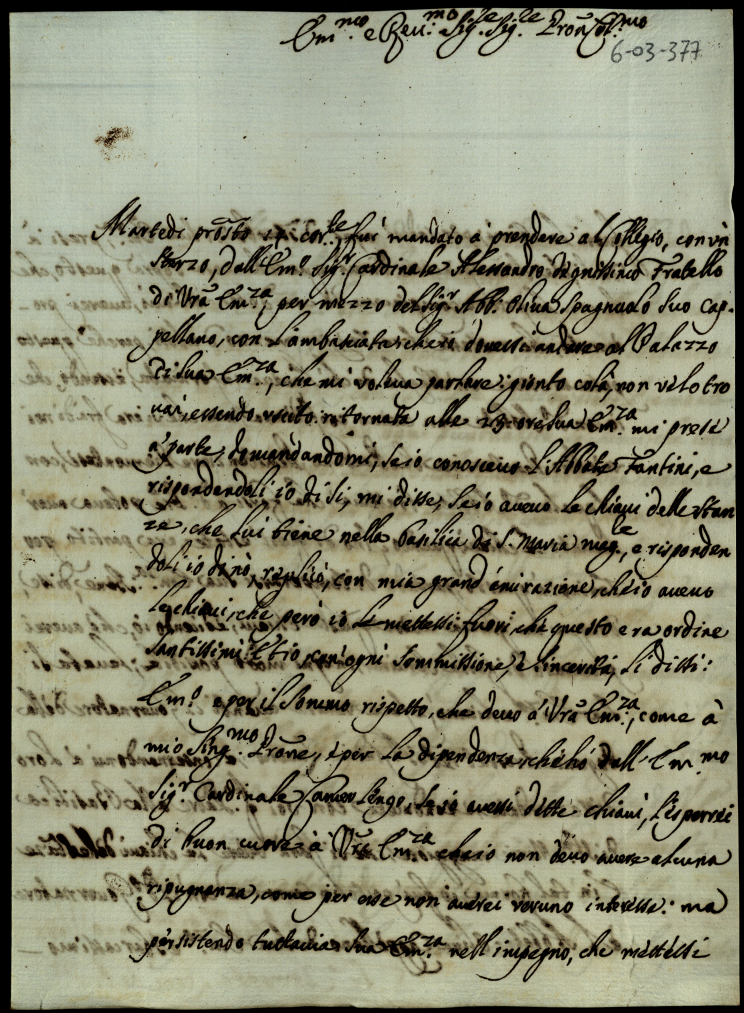 Em.mo e Rev.mo Sig.re Sig.re Pron Col.mo
6-03-377
Martedi prosto 14 cor.te fui mandato à prendere al Collegio, con un
sterzo, dall'Em.o Sig.r Cardinale Alessandro degnissimo Fratello
di Vrã Em.za, per mezzo del Sig.r Abb.e Oliva Spagnuolo suo Cap-
pellano, con l'ambasciata, che io dovessi andare al Palazzo
di sua Em.za, che mi voleva parlare: gionto colà, non ve lo tro
vai, essendo uscito. ritornata alle 23 ore sua Em.za mi prese
à parte, domandandomi, se io conoscevo l'Abbate Fantini, e
rispondendoli io di si, mi disse, se io avevo le chiavi delle stan
ze, che lui tiene nella Basilica di S. Maria Mag.e, e risponden
doli io di nò, replicò, con mia grand'amirazione, che io avevo
le chiavi, che però io le mettessi fuori, che questo era ordine
Santissimi. Et io, con ogni sommissione, è sincerità, li dissi:
Em.o e per il sommo rispetto, che devo à Vrã Em.za, come à
mio Sing.mo Prone, è per la dipendenza, che hò dall'Em.mo
Sig.r Cardinale Camerlengo, se io avessi dette chiavi, l'esporrei
di buon cuore à Vrã Em.za che io non devo avere alcuna
ripugnanza, come per esse non averei veruno interesse: ma
persistendo tuttavia sua Em.za nell'impegno, che mettessi